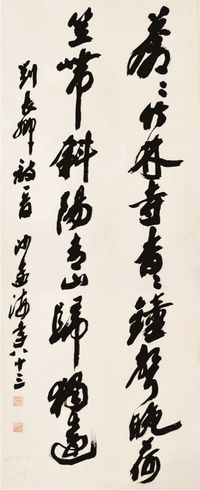 蒼〻竹林寺杳〻鐘聲晚荷
笠帶斜陽青山歸獨遠
劉長卿詩一首 沙孟海年八十三